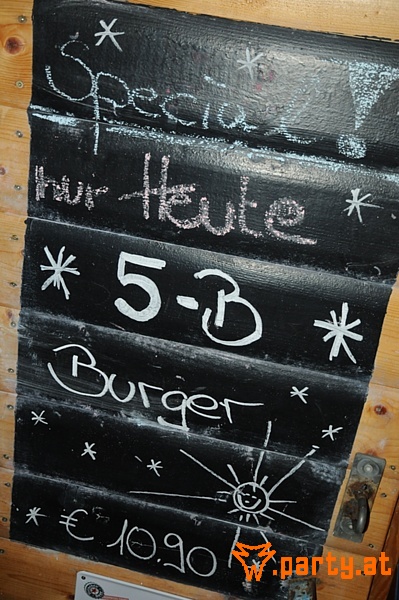 Special!
nur Heute
5-B
Burger
€ 10.90
.party.at